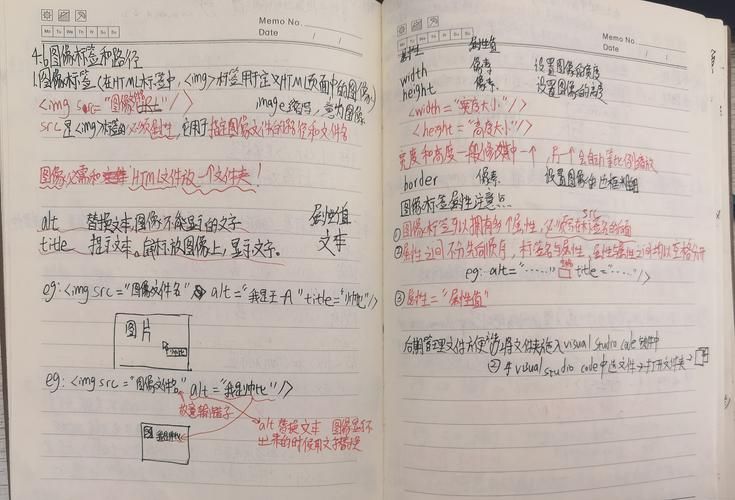 Memo No.
Mo Tu We Th Fr Sa Su
Date / /
4.6图像标签和路径
1.图像标签(在HTML标签中,<img>标签用于定义HTML页面中的图像)
<img src="图像URL"/> image缩写,意为图像
src是<img>标签的必须属性,它用于指定图像文件的路径和文件名
图像必需和HTML文件放一个文件夹!
alt 替换文本,图像不能显示的文字 属性值
title 提示文本。鼠标放图像上,显示文字。 文本
eg:<img src="图像文件名" alt="我是王-A" title="
图片
eg:<img src="图像文件名" alt="我是
故意输错子
alt替换文本 图像显示不
出来的时候用文字替换
Memo No.
Mo Tu We Th Fr Sa Su
Date / /
属性 属性值
width 像素 设置图像的宽度
height 像素 设置图像的高度
<width="宽度大小"/>
<height="高度大小"/>
宽度和高度一般修改其中一个,另一个会自动等比例缩放
border 像素 设置图像的边框粗细
图像标签属性注意点
src
①图像标签可以拥有多个属性,必须写在标签名的后面
②属性之间不分先后顺序,标签名与属性,属性与属性之间均以空格分开
空格
eg: alt="……" title="……"/>
③属性="属性值"
后期管理文件方便 ①将文件夹拖入visual studio code软件中
②在visual studio code中选文件→打开文件夹→